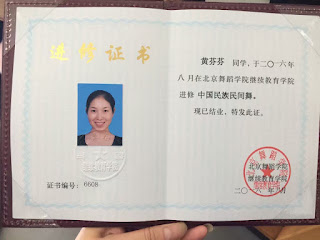 进修证书
证书编号：6608
黄芬芬 同学，于二〇一六年
八月在北京舞蹈学院继续教育学院
进修 中国民族民间舞。
现已结业，特发此证。
北京舞蹈学院
继续教育学院
二〇一六年八月